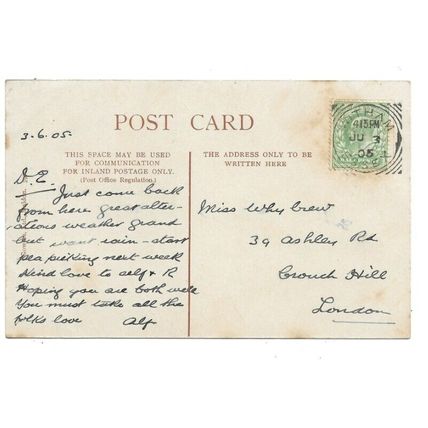 3.6.05.
POST CARD
THIS SPACE MAY BE USED
FOR COMMUNICATION
FOR INLAND POSTAGE ONLY.
(Post Office Regulation.)
D. E
Just come back
from here great alter-
ations weather grand
but want rain - start
pea picking next week
Kind love to self & R
Hoping you are both well
You must take all the
folks love Alf
THE ADDRESS ONLY TO BE
WRITTEN HERE
Miss Whybrew
39 Ashley Rd
Crouch Hill
London
THAM
415PM
JU 3
05